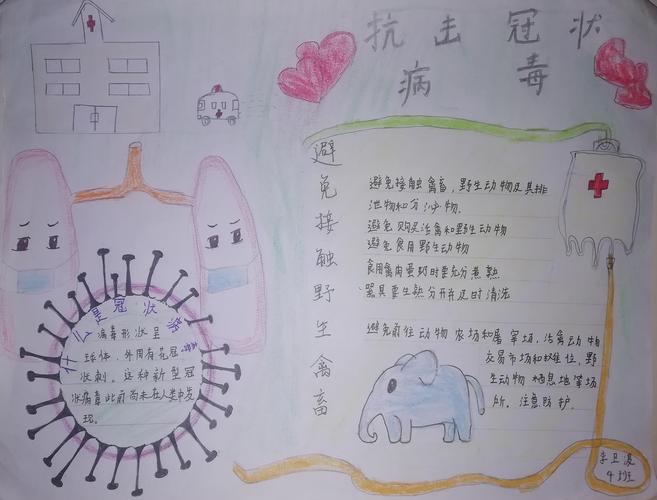 抗击冠状
病毒
避免接触野生禽畜
避免接触禽畜，野生动物及其排
泄物和分泌物.
避免购买活禽和野生动物
避免食用野生动物
食用禽肉蛋奶时要充分煮熟
器具要生熟分开并及时清洗
避免前往动物农场和屠宰场、活禽动物
交易市场和摊位，野
生动物栖息地等场
所。注意防护.
什么是冠状毒
病毒形状呈
球体，外周有花冠
状刺。这种新型冠
状病毒此前尚未在人类中发
现.
4班